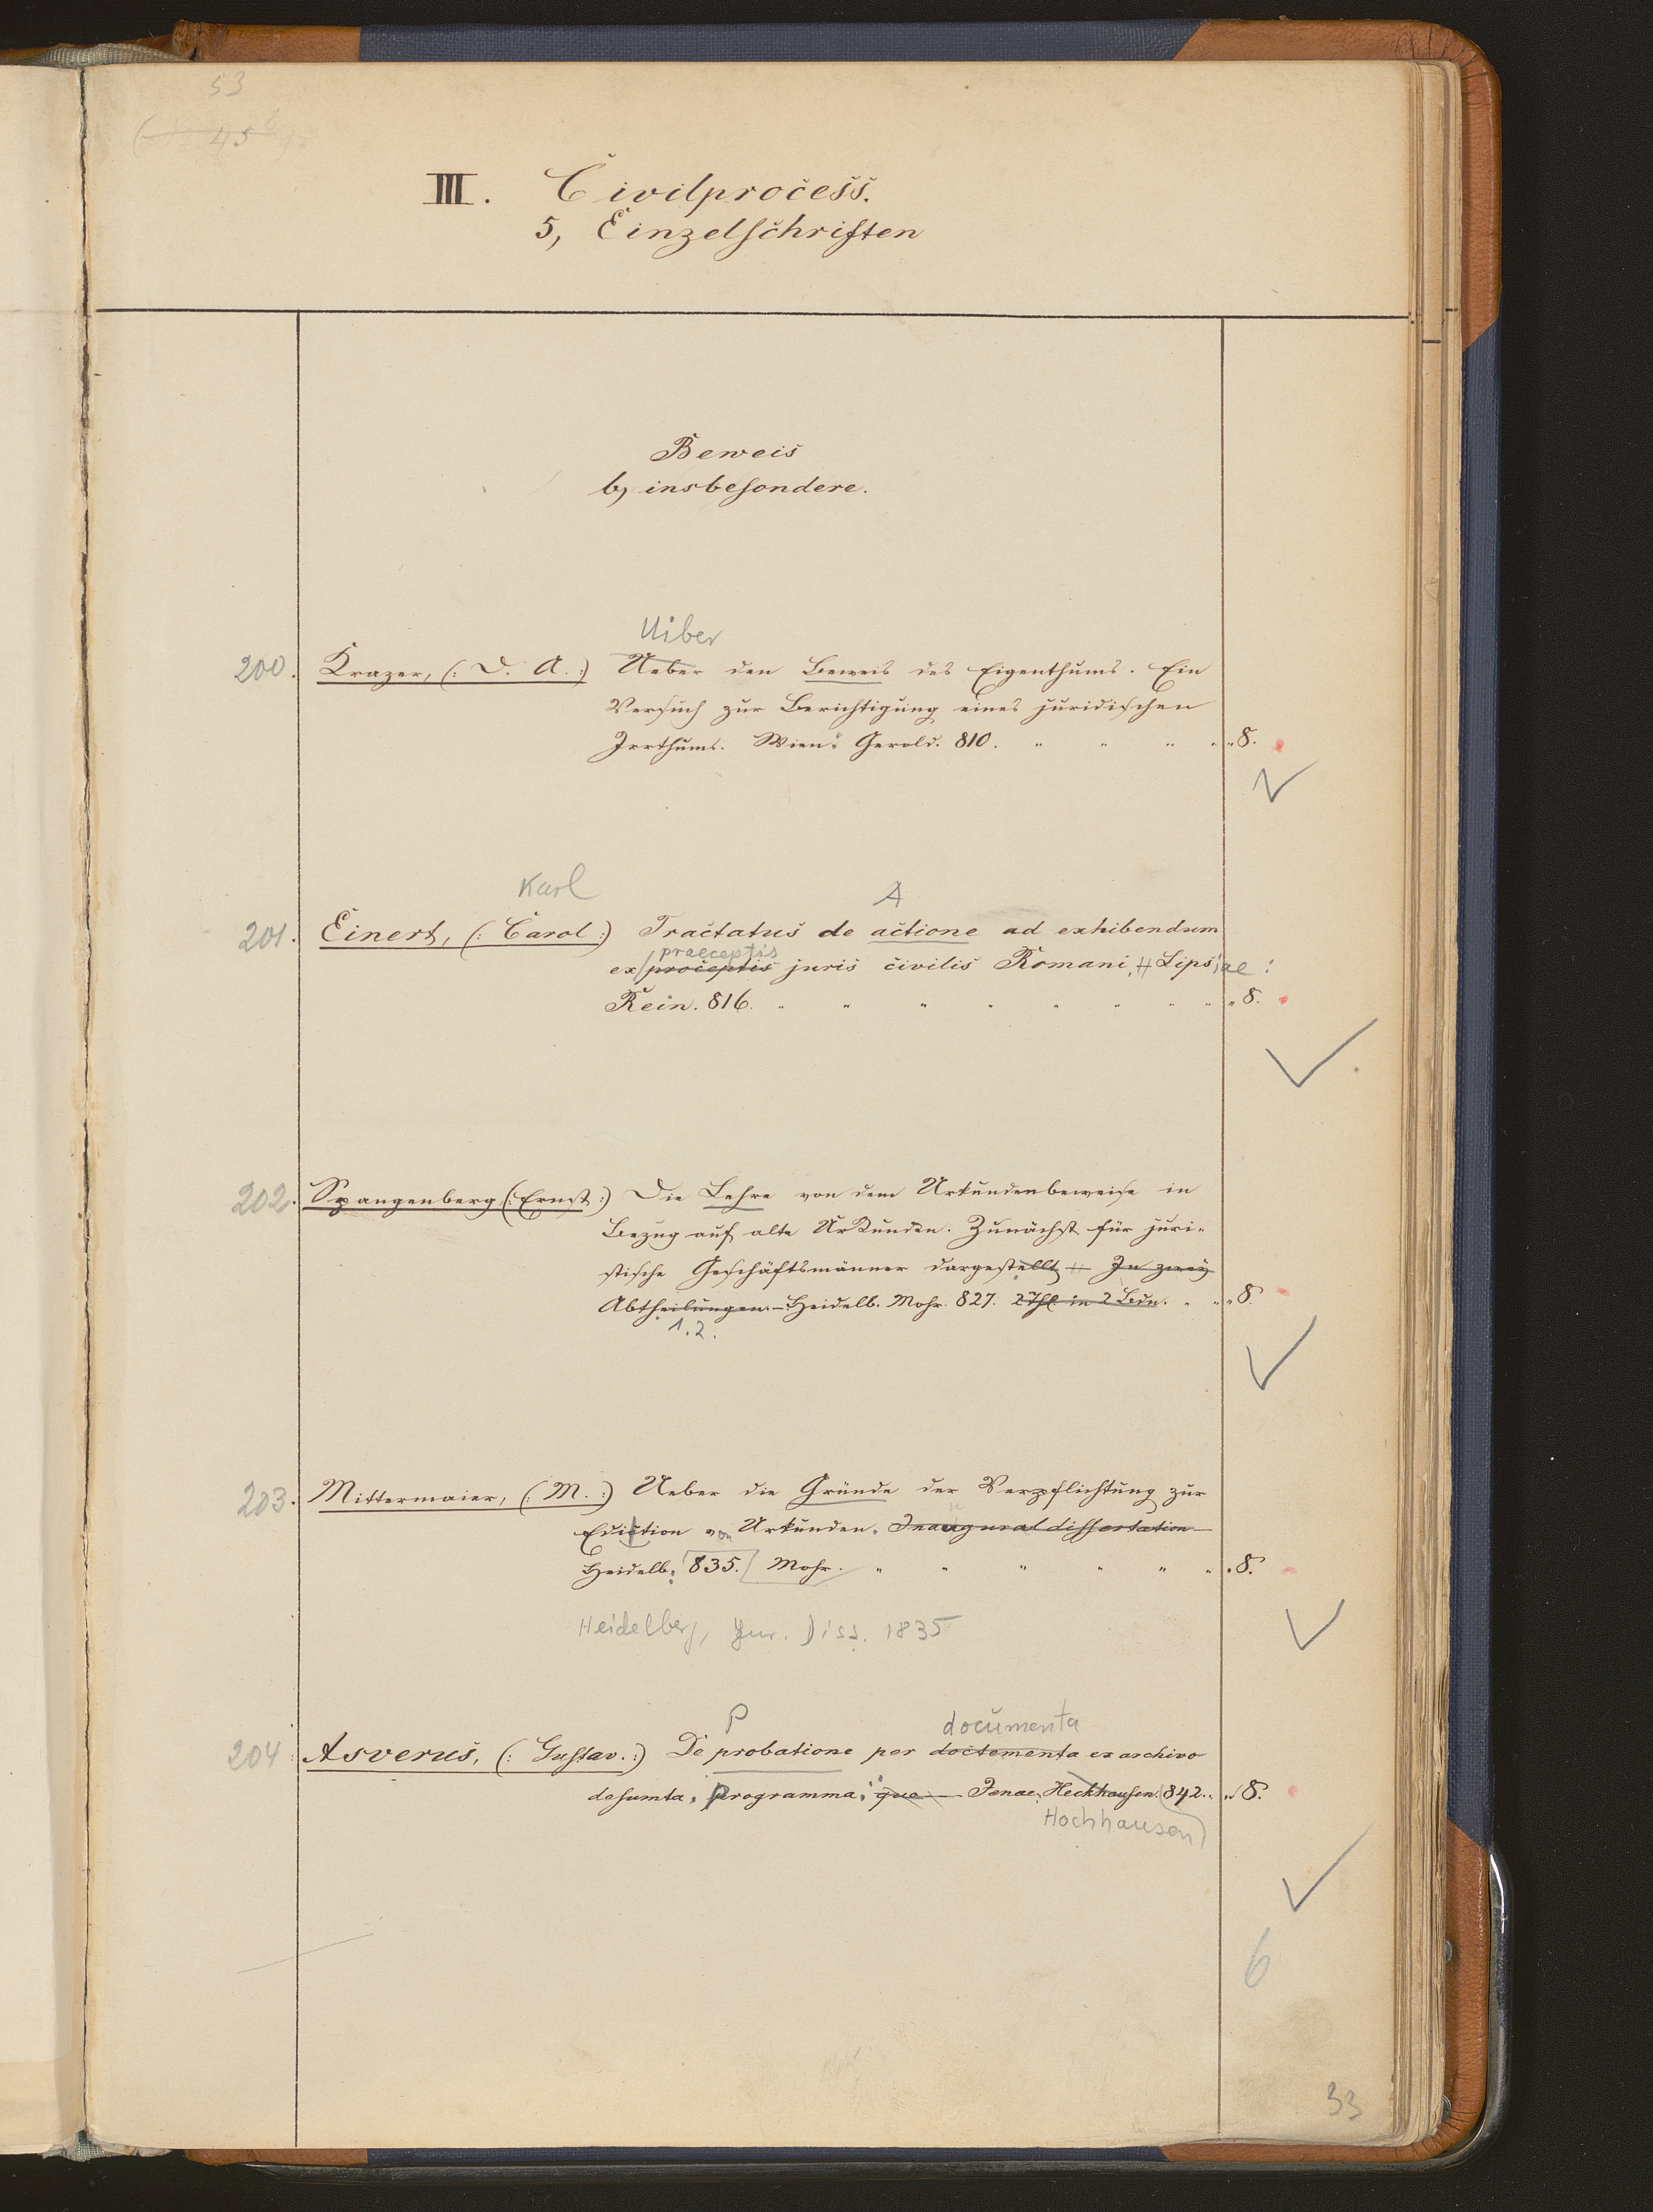 53
45
III. Civilprocess.
5, Einzelschriften
Beweis
b, insbesondere.
Uiber
200. Krazer, (: D. A. :) Ueber den Beweis des Eigenthums. Ein
Versuch zur Berichtigung eines juridischen
Irrthums. Wien: Gerold. 810. " " " " " 8.
Karl A
201. Einert, (: Carol :) Tractatus de actione ad exhibendum
praeceptis
ex proceptis juris civilis Romani, Lipsiae:
Rein. 816. " " " " " " " " " 8.
202. Spangenberg (: Ernst :) Die Lehre von dem Urkundenbeweise in
Bezug auf alte Urkunden. Zunächst für juri-
stische Geschäftsmänner dargestellt – In zwey
Abtheilungen. – Heidelb. Mohr. 827. 2 Thl. in 2 Bdn. " " " 8.
1.2.
203. Mittermaier, (: M. :) Ueber die Gründe der Verpflichtung zur
Edicition von Urkunden. Inaugural dissertation –
Heidelb: 835. Mohr. " " " " " " " 8.
Heidelberg, Jur. Diss. 1835
P documenta
204. Asverus, (: Gustav. :) De probatione per doctementa ex archivo
desumta, Programma; que – Jenae, Heckhausen. 842. " 8.
Hochhausen
6
33